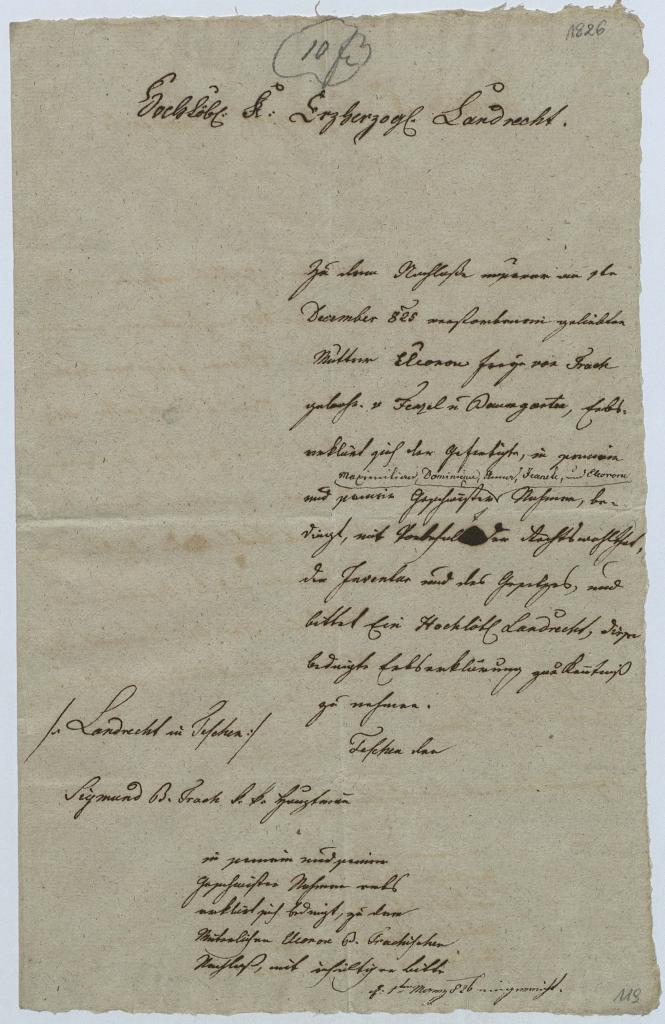 1826
10
Hochlöbl: K: Erzherzogl. Landrecht.
Zu dem Nachlaße unserer am 1ten
December 825 verstorbenen geliebten
Mutter Eleonore freye von Trach
gebohr. v Fenzel u Baumgarten, Erbs-
erklärt sich der Gefertigte, in seinem
Maximilian, Dominique, Franck, und Eleonore
und seiner Geschwister Nahmen, be-
dingt, mit Vorbehalt der Rechtswohlthat,
des Inventar und des Gesetzes, und
bittet Ein Hochlöbl Landrecht, diese
bedingte Erbserklärung zur Kentniß
zu nehmen.
/: Landrecht in Teschen :/
Teschen den
Sigmund B. Trach k. k. Hauptmann
in seinem und seiner
Geschwister Nahmen erbs
erklärt sich bedingt, zu dem
Mütterlichen Eleonore B. Trachischen
Nachlaß, mit bitte
1ten 826 eingereicht.
119